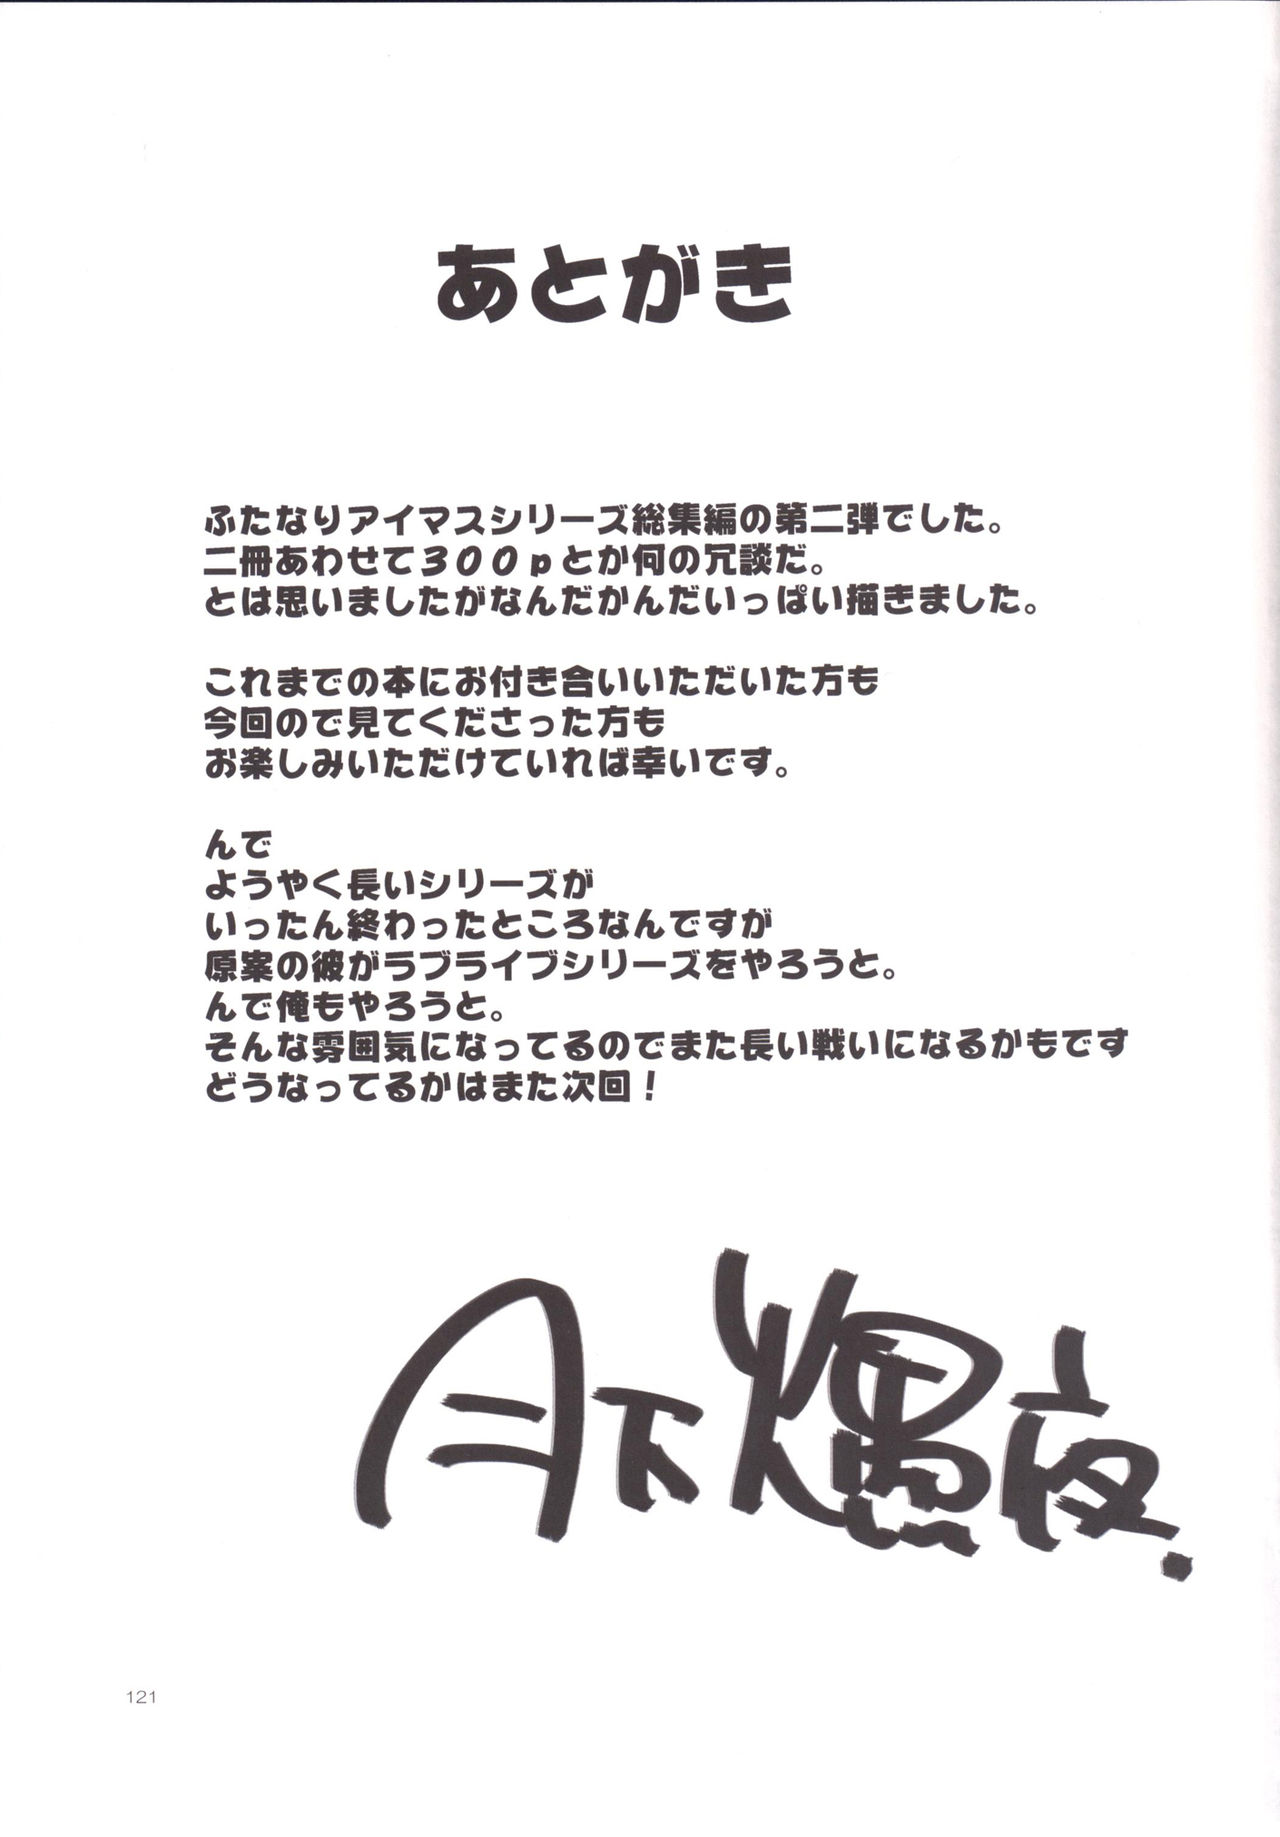 あとがき
ふたなりアイマスシリーズ総集編の第二弾でした。
二冊あわせて300pとか何の冗談だ。
とは思いましたがなんだかんだいっぱい描きました。
これまでの本にお付き合いいただいた方も
今回ので見てくださった方も
お楽しみいただけていれば幸いです。
んで
ようやく長いシリーズが
いったん終わったところなんですが
原案の彼がラブライブシリーズをやろうと。
んで俺もやろうと。
そんな雰囲気になってるのでまた長い戦いになるかもです
どうなってるかはまた次回！
月下燻夜.
121